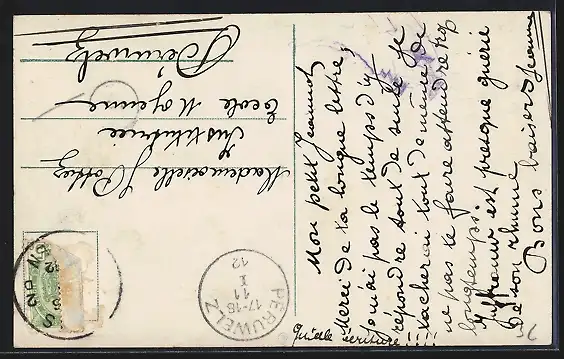 Mon petit Jeannot,
Merci de ta longue lettre,
je n'ai pas le temps d'y
répondre tout de suite. Je
tacherai tout de même de
ne pas te faire attendre trop
longtemps.
est presque guérie
de son rhume
Bons baisers Jeanne
Quelle écriture !!!!
Mademoiselle J.
Institutrice
Ecole Moyenne
Péruwelz
PERUWELZ
17-18
11
X
12
56